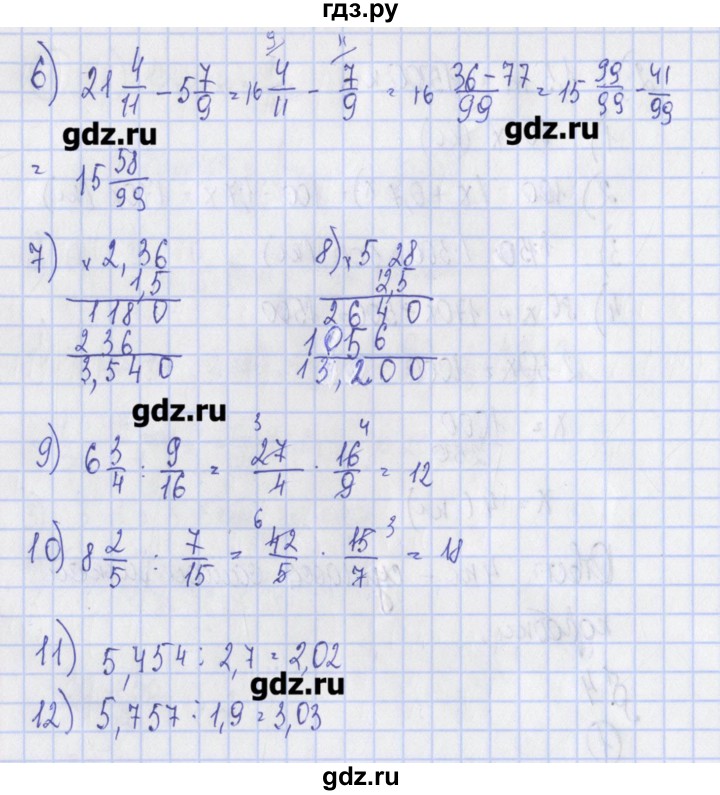 гдз.ру
6) 21 4/11 - 5 7/9 = 16 4/11 - 7/9 = 16 (36-77)/99 = 15 99/99 - 41/99
9 11
gdz.ru
gdz.ru
= 15 58/99
7) × 2,36
1,5
1180
236
3,540
8) × 5,28
2,5
2640
1056
13,200
gdz.ru
9) 6 3/4 : 9/16 = 27/4 · 16/9 = 12
3 4
10) 8 2/5 : 7/15 = 42/5 · 15/7 = 18
6 3
11) 5,454 : 2,7 = 2,02
gdz.ru
12) 5,757 : 1,9 = 3,03
gdz.ru